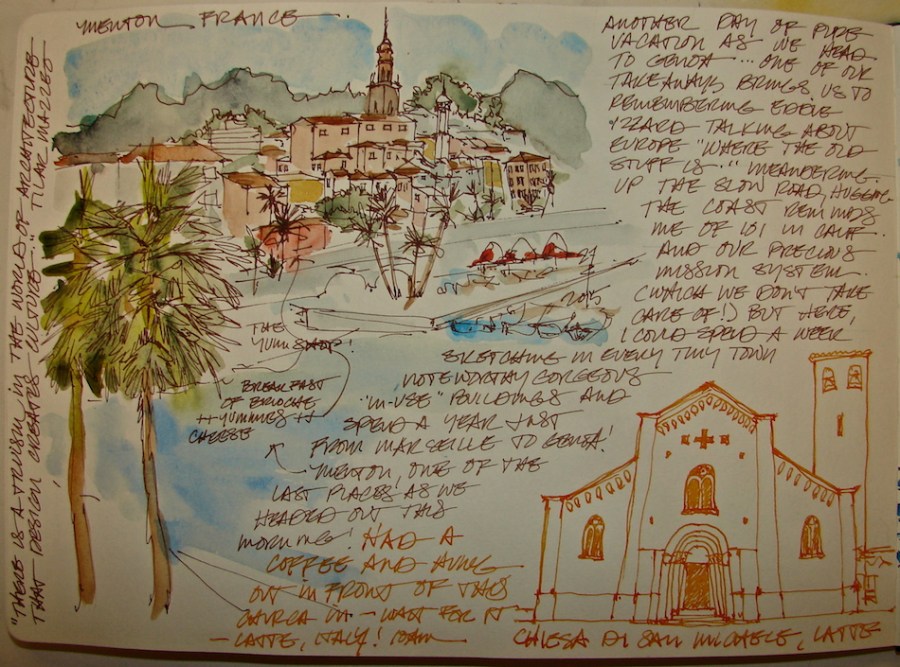 MENTON FRANCE
ANOTHER DAY OF PURE
VACATION AS WE HEAD
TO GENOA ... ONE OF OUR
TAKEAWAYS BRINGS US TO
REMEMBERING EDDIE
IZZARD TALKING ABOUT
EUROPE "WHERE THE OLD
STUFF IS..." MEANDERING
UP THE SLOW ROAD, HUGGING
THE COAST REMINDS
ME OF 101 IN CALIF.
AND OUR PRECIOUS
MISSION SYSTEM
(WHICH WE DON'T TAKE
CARE OF!) BUT HERE,
I COULD SPEND A WEEK
SKETCHING IN EVERY TINY TOWN
NOTEWORTHY GORGEOUS
"IN-USE" BUILDINGS AND
SPEND A YEAR JUST
FROM MARSEILLE TO GENOA!
MENTON, ONE OF THE
LAST PLACES, AS WE
HEADED OUT THIS
MORNING! HAD A
COFFEE AND HUNG
OUT IN FRONT OF THIS
CHURCH IN - WAIT FOR IT -
- LATTE, ITALY!
CHIESA DI SAN MICHELE, LATTE
2015
THE
YUM SHOP!
BREAKFAST
OF BRIOCHE
CHEESE
"THERE IS A TRUISM IN THE WORLD OF ARCHITECTURE
THAT DESIGN CREATES CULTURE..."